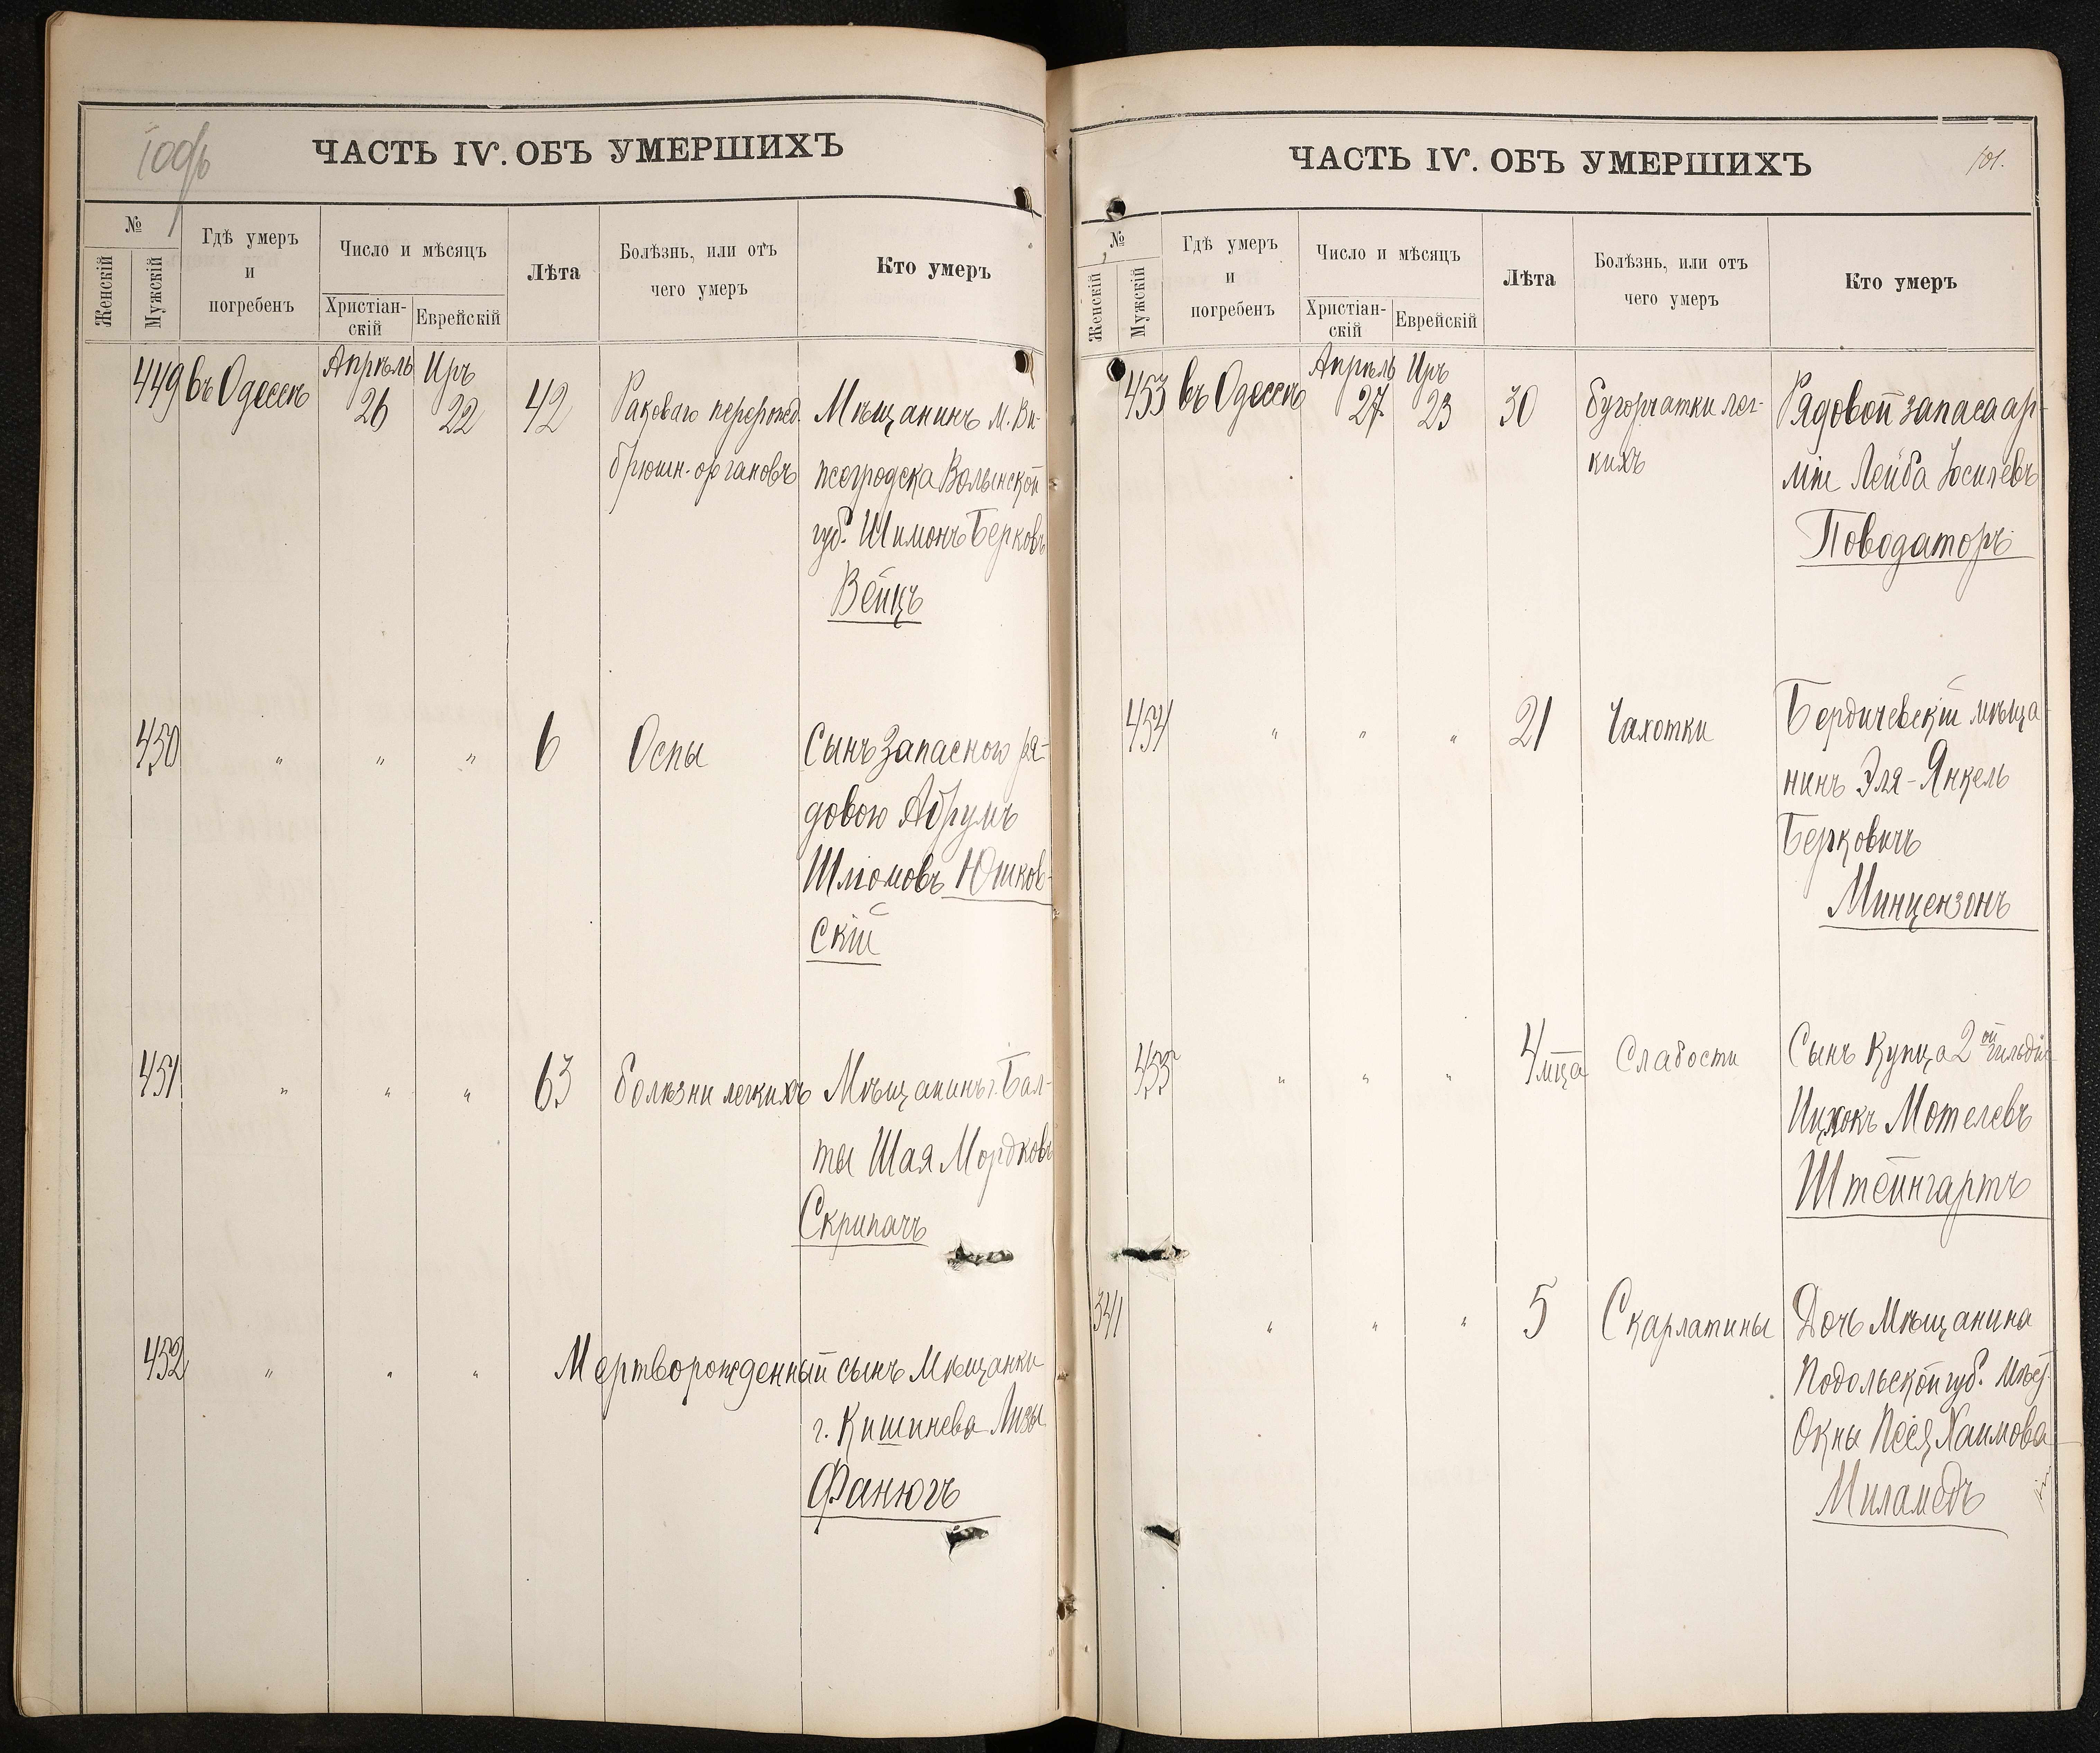 100об
ЧАСТЬ IV. ОБЪ УМЕРШИХЪ
№
Женскій
Мужскій
Гдѣ умеръ
и
погребенъ
Число и мѣсяцъ
Христіан-
скій
Еврейскій
Лѣта
Болѣзнь, или отъ
чего умеръ
Кто умеръ
449 въ Одессѣ Апрѣль 26 Иръ 22 42 Раковаго перерожд. Мѣщанинъ м. Вы-
брюшн. органовъ Волынской
губ. Шимонъ Берковъ
Вейцъ
450 " " " 6 Оспы Сынъ Запасного ря-
дового Абрумъ
Шліомовъ Юшков-
скій
451 " " " 63 болѣзни легкихъ Мѣщанинъ г. Бал-
ты Шая Мордковъ
Скрипачъ
452 " " " Мертворожденный сынъ Мѣщанки
г. Кишинева Лизы
Фанюгъ
101.
ЧАСТЬ IV. ОБЪ УМЕРШИХЪ
№
Женскій
Мужскій
Гдѣ умеръ
и
погребенъ
Число и мѣсяцъ
Христіан-
скій
Еврейскій
Лѣта
Болѣзнь, или отъ
чего умеръ
Кто умеръ
453 въ Одессѣ Апрѣль 27 Иръ 23 30 бугорчатки лег- Рядовой запаса ар-
кихъ міи Лейба Іосилевъ
Поводаторъ
454 " " " 21 Чахотки Бердичевскій мѣща-
нинъ Эля-Янкель
Берковичъ
Минцензонъ
455 " " " 4 мца Слабости Сынъ Купца 2ой гильдіи
Ицхокъ Мотелевъ
Штейнгартъ
341 " " " 5 Скарлатины Дочь Мѣщанина
Подольской губ. мѣст.
Окны Песя Хаимова
Миламедъ